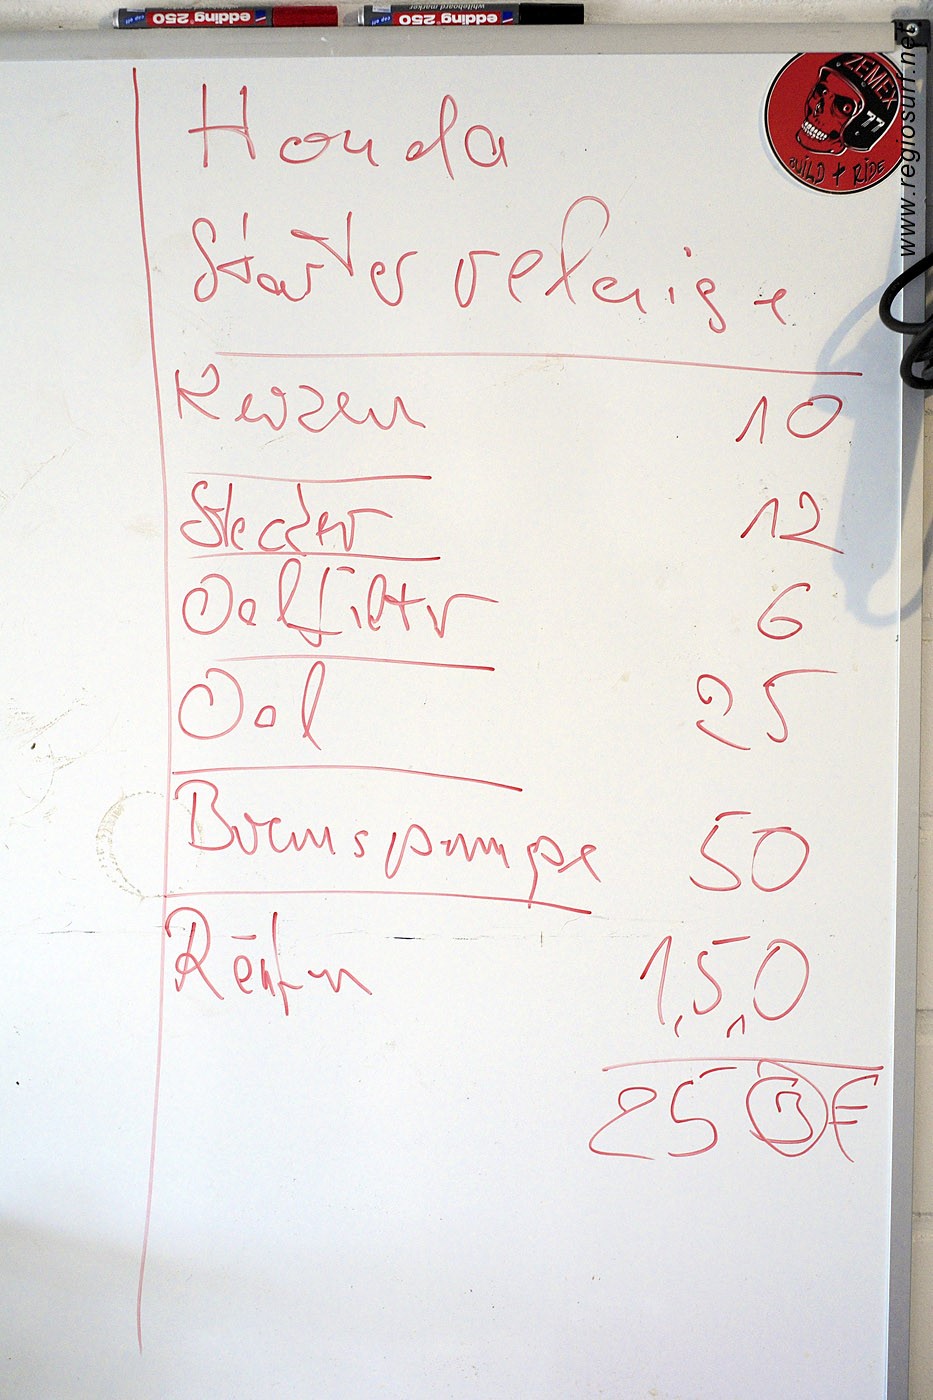 edding 250
cap off
edding 250
whiteboard marker
cap off
ZEMEX
77
BUILD + RIDE
www.regiosurf.net
Honda
Starterrelaise
Kerzen 10
Stecker 12
Oelfilter 6
Oel 25
Bremspumpe 50
Reifen 150
253€